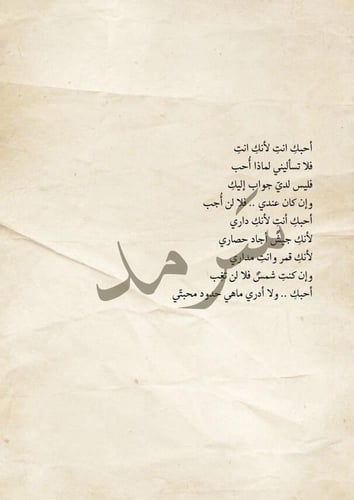 أحبكِ انتِ لأنكِ انتِ
فلا تسأليني لماذا أُحب
فليس لديّ جواب إليكِ
وإن كان عندي .. فلا لن أُجب
أحبكِ أنتِ لأنكِ داري
لأنكِ جيش أجاد حصاري
لأنكِ قمر وانتِ مداري
وإن كنتِ شمسٌ فلا لن تغب
أحبكِ .. ولا أدري ماهي حدود محبتّي
سَرمد